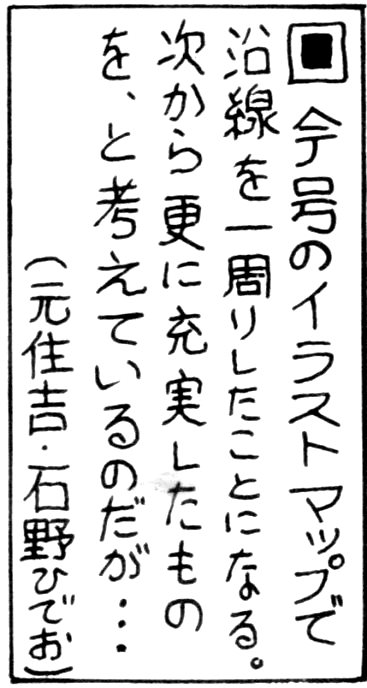 ▣ 今号のイラストマップで
沿線を一周りしたことになる。
次から更に充実したもの
を、と考えているのだが…
(元住吉・石野ひでお)